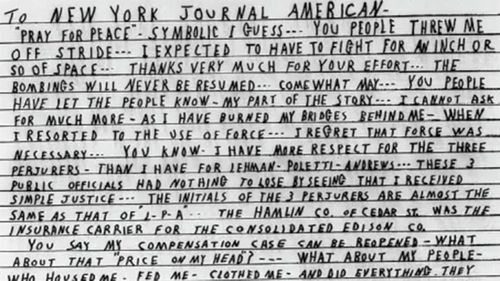 To NEW YORK JOURNAL AMERICAN-
"PRAY FOR PEACE"- SYMBOLIC I GUESS--- YOU PEOPLE THREW ME
OFF STRIDE--- I EXPECTED TO HAVE TO FIGHT FOR AN INCH OR
SO OF SPACE--- THANKS VERY MUCH FOR YOUR EFFORT--- THE
BOMBINGS WILL NEVER BE RESUMED--- COME WHAT MAY--- YOU PEOPLE
HAVE LET THE PEOPLE KNOW- MY PART OF THE STORY--- I CANNOT ASK
FOR MUCH MORE - AS I HAVE BURNED MY BRIDGES BEHIND ME- WHEN
I RESORTED TO THE USE OF FORCE--- I REGRET THAT FORCE WAS
NECESSARY--- YOU KNOW- I HAVE MORE RESPECT FOR THE THREE
PERJURERS - THAN I HAVE FOR LEHMAN- POLETTI- ANDREWS--- THESE 3
PUBLIC OFFICIALS HAD NOTHING TO LOSE BY SEEING THAT I RECEIVED
SIMPLE JUSTICE--- THE INITIALS OF THE 3 PERJURERS ARE ALMOST THE
SAME AS THAT OF L-P-A-- THE HAMLIN CO. OF CEDAR ST. WAS THE
INSURANCE CARRIER FOR THE CONSOLIDATED EDISON CO.
YOU SAY MY COMPENSATION CASE CAN BE REOPENED - WHAT
ABOUT THAT "PRICE ON MY HEAD"? --- WHAT ABOUT MY PEOPLE-
WHO HOUSED ME- FED ME- CLOTHED ME- AND DID EVERYTHING THEY